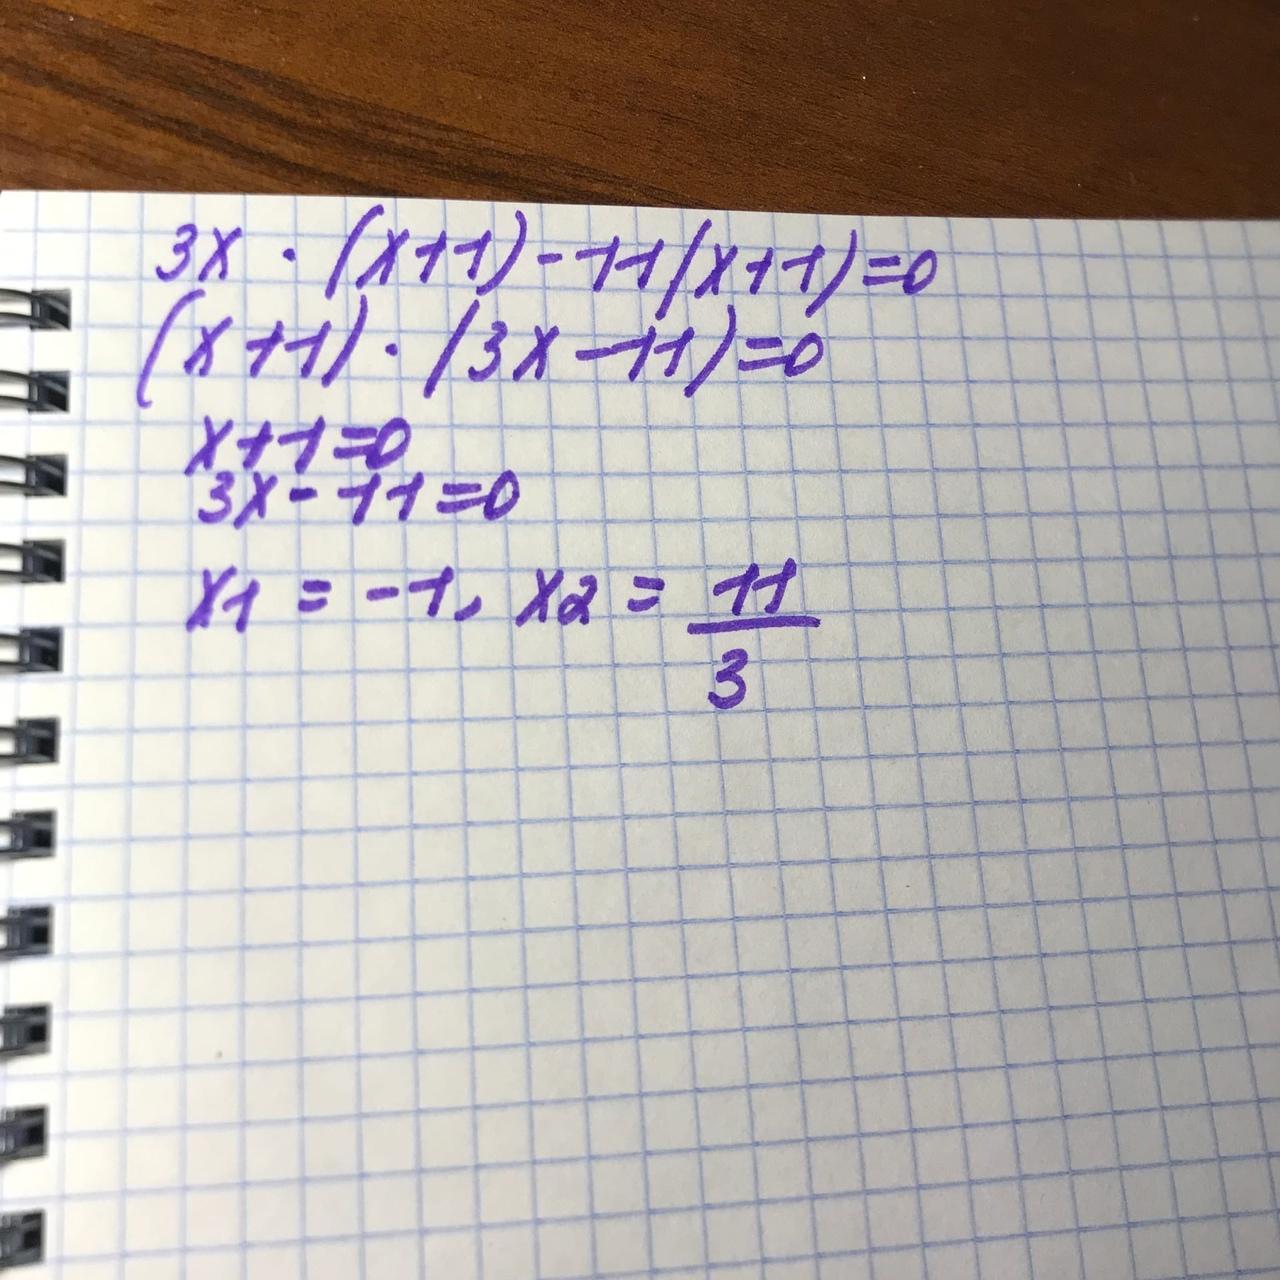 3x · (x+1)-11(x+1)=0
(x+1) · (3x-11)=0
x+1=0
3x-11=0
x1 = -1, x2 = 11/3